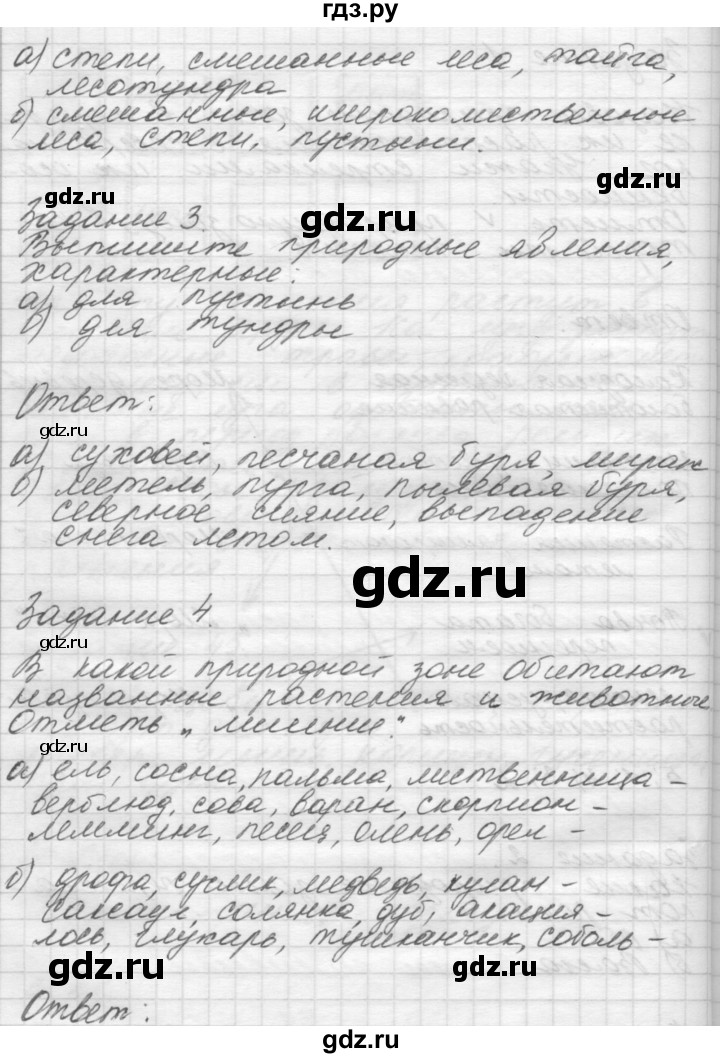 гдз.ру
а) степи, смешанные леса, тайга,
лесотундра
б) смешанные, широколиственные
леса, степи, пустыни.
gdz.ru
Задание 3.
gdz.ru
Выпишите природные явления,
характерные:
а) для пустынь
gdz.ru
б) для тундры
Ответ:
gdz.ru
gdz.ru
а) суховей, песчаная буря, мираж
б) метель, пурга, пылевая буря,
северное сияние, выпадение
снега летом.
gdz.ru
Задание 4.
gdz.ru
gdz.ru
В какой природной зоне обитают
названные растения и животные
Отметь „лишние".
gdz.ru
а) ель, сосна, пальма, лиственница -
верблюд, сова, варан, скорпион -
лемминг, песец, олень, орел -
б) дрофа, суслик, медведь, кулан -
саксаул, солянка, дуб, акация -
лось, глухарь, тушканчик, соболь -
gdz.ru
gdz.ru
Ответ:
gdz.ru